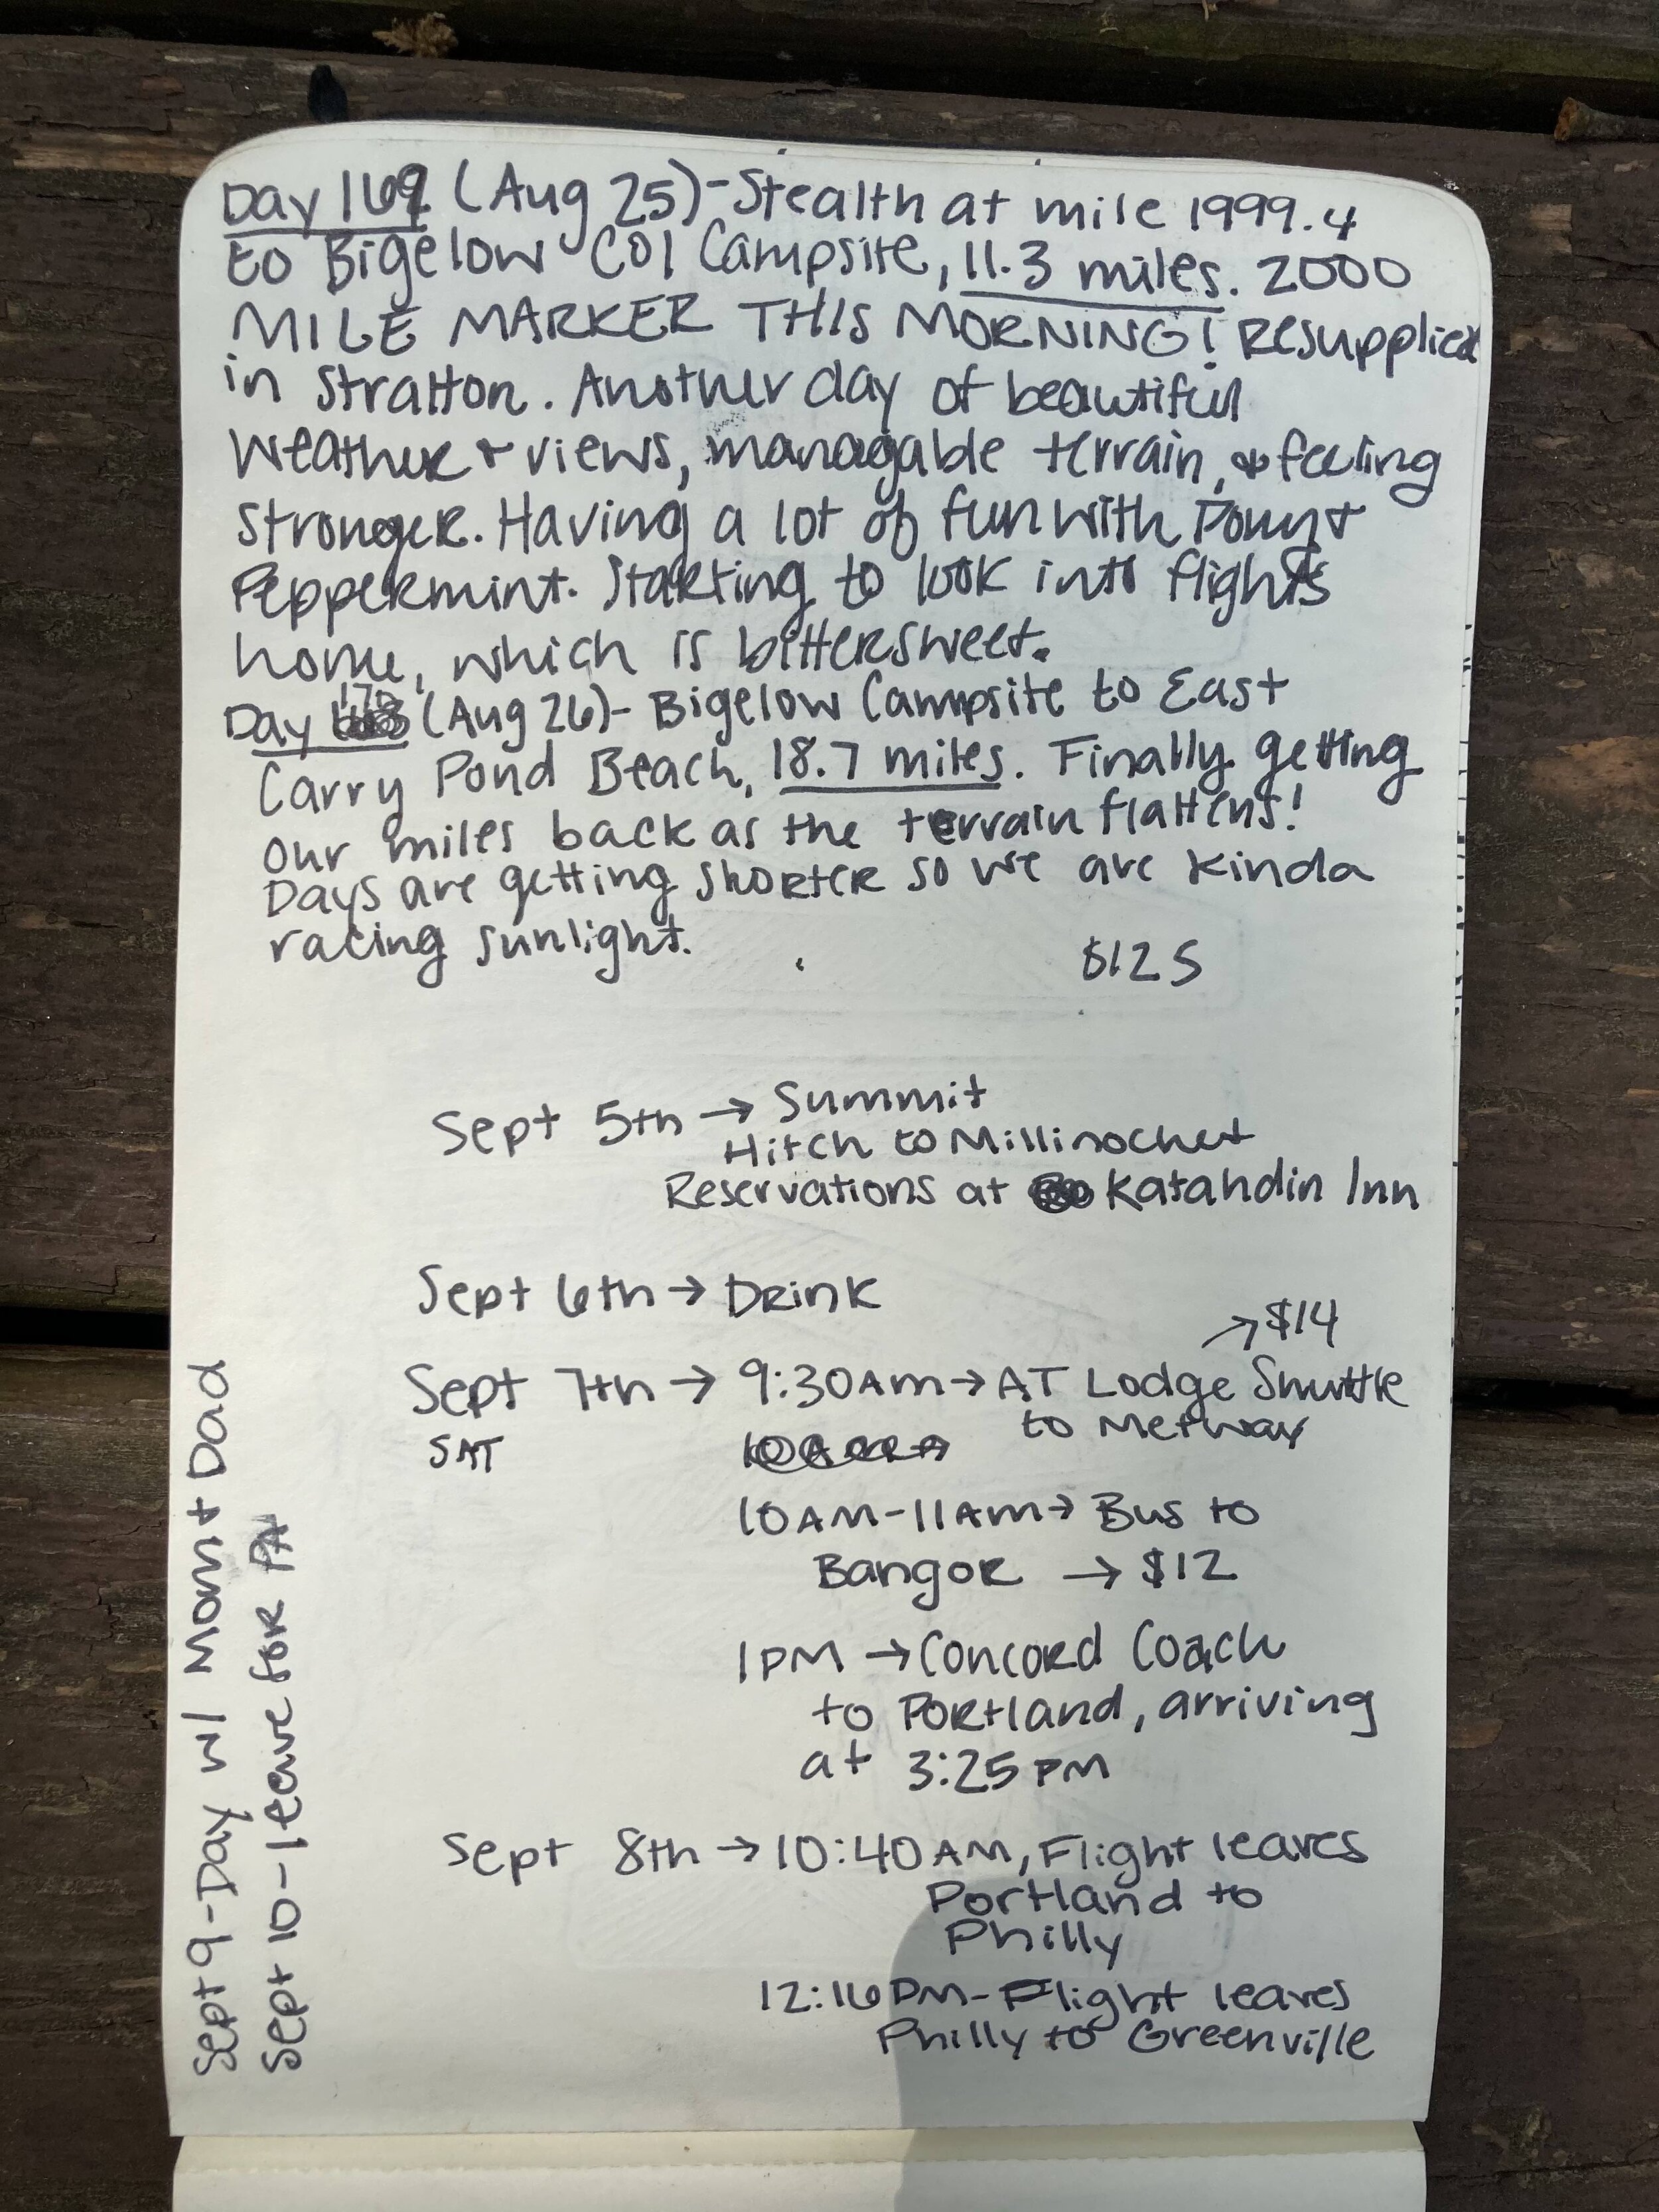 Day 169 (Aug 25)-Stealth at mile 1999.4
to Bigelow Col Campsite, 11.3 miles. 2000
MILE MARKER THIS MORNING! Resupplied
in Stratton. Another day of beautiful
weather + views, managable terrain, & feeling
stronger. Having a lot of fun with Pony +
Peppermint. Starting to look into flights
home, which is bittersweet.
Day 170 (Aug 26)- Bigelow Campsite to East
Carry Pond Beach, 18.7 miles. Finally getting
our miles back as the terrain flattens!
Days are getting shorter so we are kinda
racing sunlight.
$125
Sept 5th → Summit
Hitch to Millinochet
Reservations at Katahdin Inn
Sept 6th → Drink
→ $14
Sept 7th → 9:30AM → AT Lodge Shuttle
SAT
to Metway
10AM-11AM → Bus to
Bangor → $12
1PM → Concord Coach
to Portland, arriving
at 3:25 PM
Sept 8th → 10:40AM, Flight leaves
Portland to
Philly
12:16PM-Flight leaves
Philly to Greenville
Sept 9-Day w/ Mom + Dad
Sept 10-leave for PA